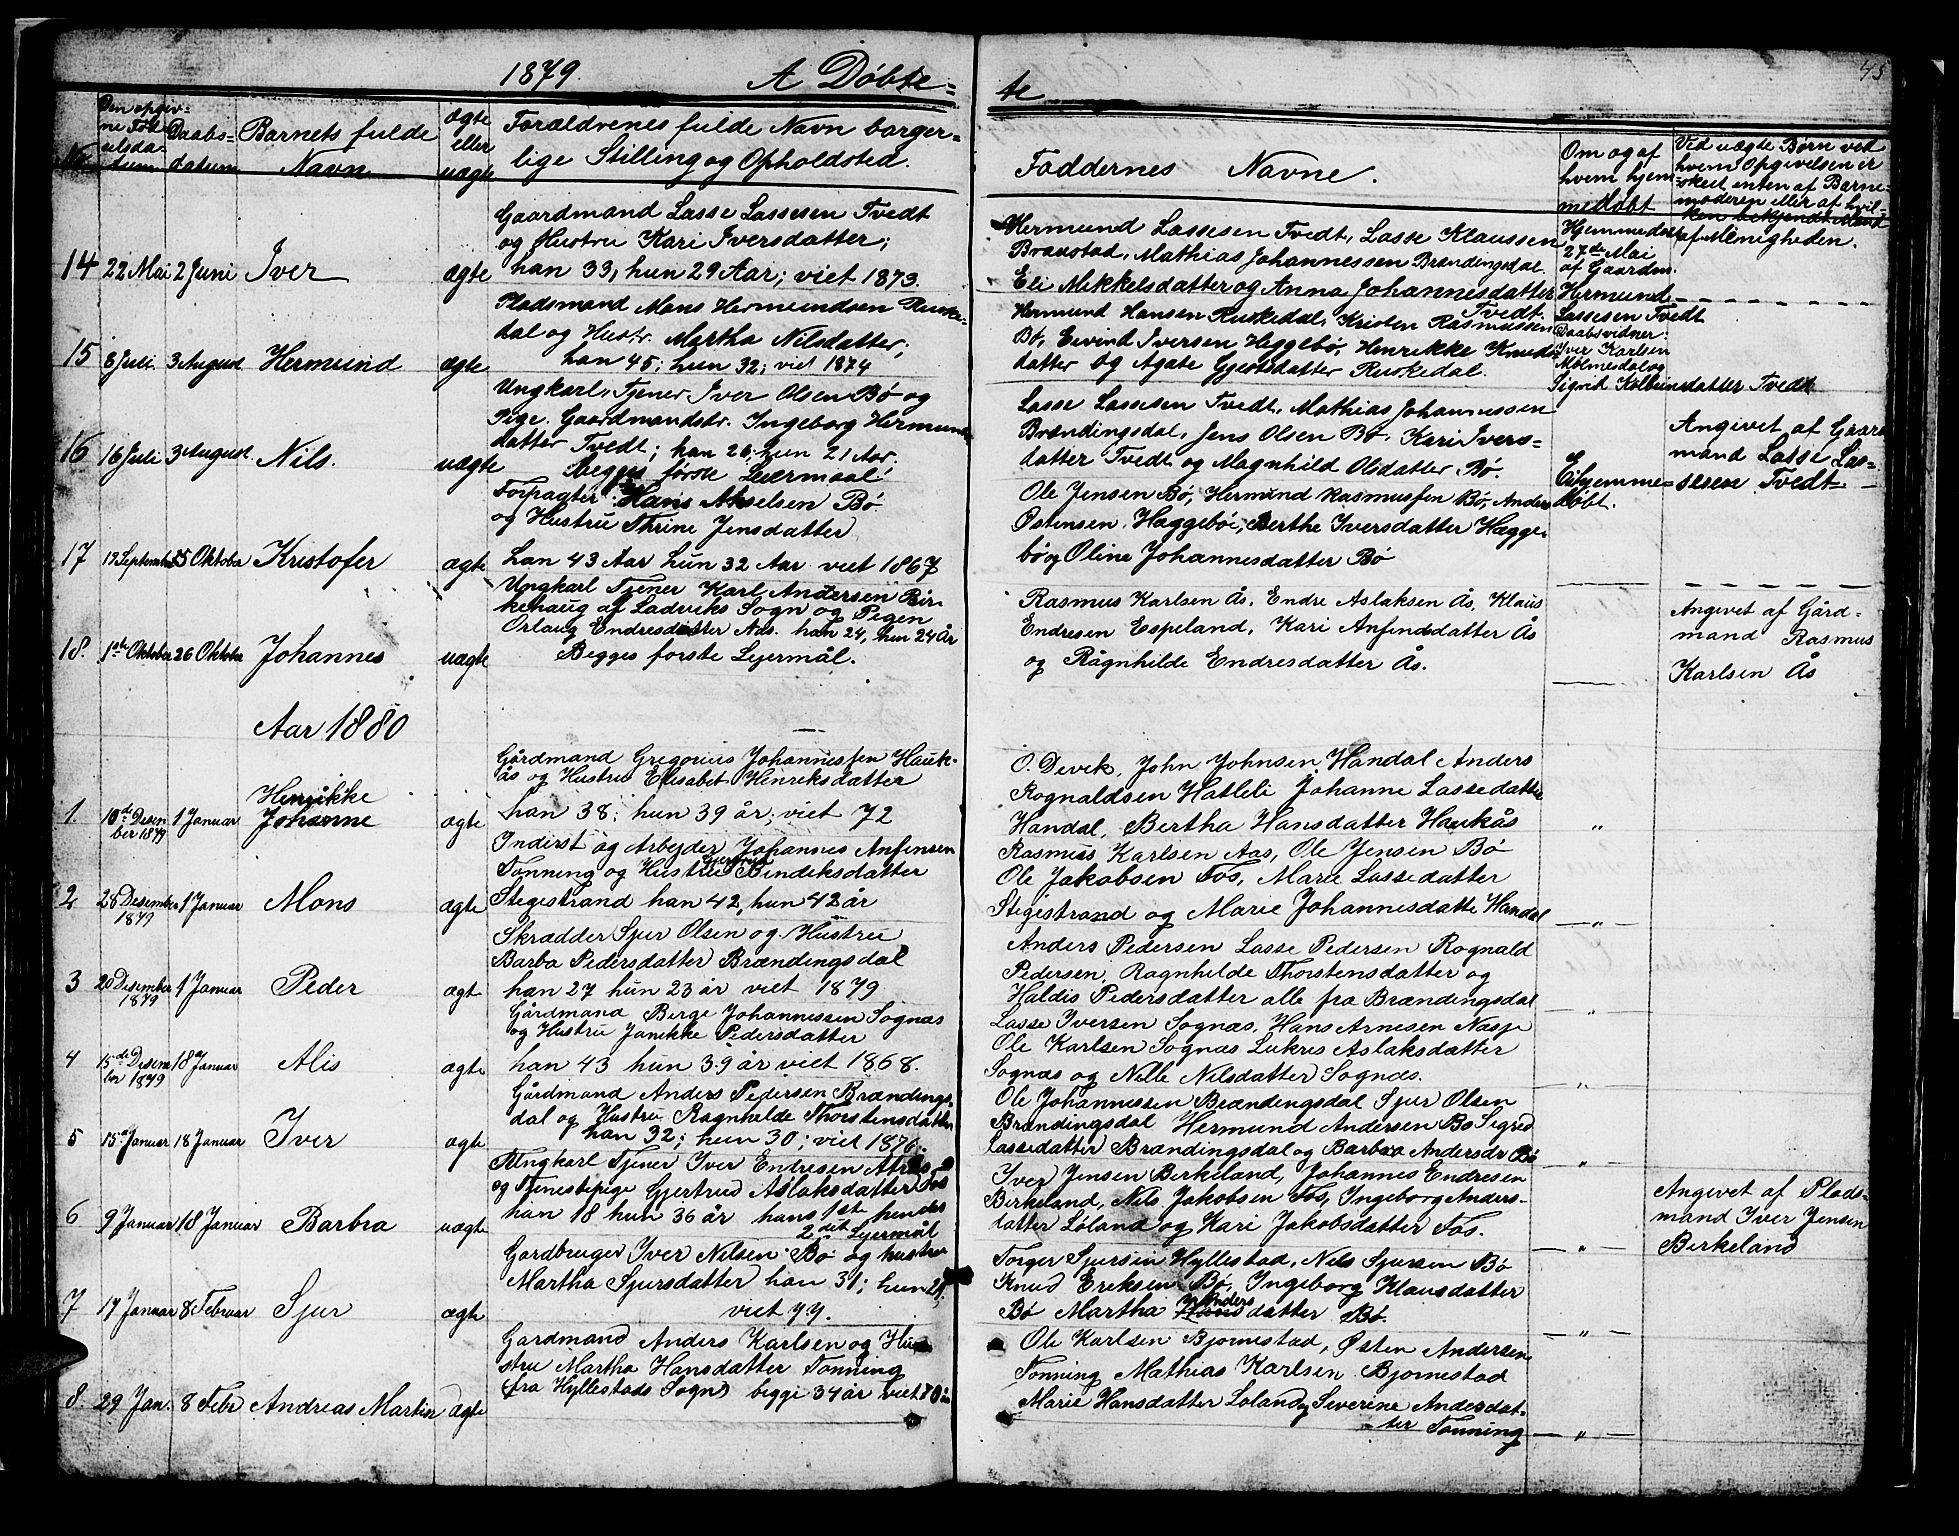 1879. A Døbte=
te
45
No.
Den opgiv-
ne Fød-
selsda-
tum
Daabs-
datum
Barnets fulde
Navn
ægte
eller
uægte
Forældrenes fulde Navn borger=
lige Stilling og Opholdsted.
Faddernes Navne.
Om og af
hvem hjem=
medøbt
Ved uægte Børn ved
hvem Opgivelsen er
skeet enten af Barne=
moderen eller af hvil-
ken bekjendt Mand
af Menigheden.
Gaardmand Lasse Lassesen Tvedt
og Hustru Kari Iversdatter;
14 22 Mai 2 Juni Iver ægte han 33, hun 29 Aar; viet 1873.
Hermund Lassesen Tvedt, Lasse Klaussen
Braastad, Mathias Johannessen Brændingsdal.
Eli Mikkelsdatter og Anna Johannesdatter
Tvedt.
Hjemmedøbt
27de Mai
af Gaardm.
Hermund
Lassesen Tvedt
Daabsvidner:
Iver Karlsen
Mølmesdal og
Sigrid Kolbeinsdatter Tvedt
Pladsmand Mons Hermundsen Ruske-
dal og Hustr. Martha Nilsdatter;
15 8 Juli 3 August Hermund ægte han 45; hun 32; viet 1874
Hermund Hansen Ruskedal, Kristen Rasmussen
Bø, Eivind Iversen Heggebø, Henrikke Knuds
datter og Agate Gjertsdatter Ruskedal.
Ungkarl, Tjener Iver Olsen Bø og
Pige. Gaardmandsdtr. Ingeborg Hermunds
datter Tvedt; han 26, hun 21 Aar.
16 16 Juli 3 August. Nils. uægte begges første Leiermaal!
Lasse Lassesen Tvedt, Mathias Johannessen
Brændingsdal, Jens Olsen Bø, Kari Ivers=
datter Tvedt og Magnhild Olsdatter Bø.
Ei hjemme=
døbt.
Angivet af Gaard
mand Lasse Las-
sesen Tvedt
Forpagter Hans Akselsen Bø
og Hustru Thrine Jensdatter
17 19 September 5 Oktober Kristofer ægte han 43 Aar hun 32 Aar viet 1867
Ole Jensen Bø, Hermund Rasmusen Bø, Anders
Østensen Hæggebø, Berthe Iversdatter Hægge-
bø og Oline Johannesdatter Bø
Ungkarl Tjener Karl Andersen Bir-
kehaug af Ladviks Sogn og Pigen
Orlaug Endresdatter Aas. han 24, hun 24 år
18. 1ste Oktober 26 Oktober Johannes uægte Begges første Lejermål.
Rasmus Karlsen Ås, Endre Aslaksen Ås, Klaus
Endresen Espeland, Kari Anfindsdatter Ås
og Rågnhilde Endresdatter Ås.
Angivet af Gård=
mand Rasmus
Karlsen Ås
Aar 1880
Gårdmand Gregorius Johannessen Hauk-
ås og Hustru Elisabet Henriksdatter
1. 10de Desem
ber 1879 1 Januar Henrikke
Johanne ægte han 38; hun 39 år; viet 72
O. Devik, John Johnsen Handal Anders
Rognaldsen Hatleli Johanne Lassedatter
Handal, Bertha Hansdatter Haukås
Inderst og Arbejder Johannes Anfensen
Tønning og Hustru Gjertrud Bendiksdatter
2 28 Desember
1879 1 Januar Mons ægte Stegestrand han 42, hun 42 år
Rasmus Karlsen Aas, Ole Jensen Bø
Ole Jakobsen Fos, Marie Lassedatter
Stegestrand og Marie Johannesdatte Handal
Skrædder Sjur Olsen og Hustru
Barba Pedersdatter Brændingsdal
3 20 Desember
1879 1 Januar Peder ægt han 27 hun 23 år viet 1879
Anders Pedersen Lasse Pedersen Rognald
Pedersen, Ragnhilde Thorstensdatter og
Haldis Pedersdatter alle fra Brændingsdal
Gårdmand Berge Johannessen Sognæs
og Hustru Janikke Pedersdatter
4 15de Desem
ber 1879 18 Januar Alis ægte han 43 hun 39 år viet 1868.
Lasse Iversen Sognæs, Hans Arnesen Næsje
Ole Karlsen Sognæs Lukris Aslaksdatter
Sognæs og Nille Nilsdatter Sognæs.
Gårdmand Anders Pedersen Brændings-
dal og Hustru Ragnhilde Thorstensdatter
5 15 Januar 18 Januar Iver ægte han 32; hun 30; viet 1876.
Ole Johannessen Brændingsdal Sjur Olsen
Brændingsdal Hermund Andersen Bø Sigred
Lassedatter Brændingsdal og Barbra Andersdr Bø
Ungkarl Tjener Iver Endresen
og Tjenestepige Gjertrud Aslaksdatter Fos
6 9 Januar 18 Januar Barbra uægte han 18 hun 36 år hans 1ste hendes
2det Lejermål
Iver Jensen Birkeland, Johannes Endresen
Birkeland, Nils Jakobsen Fos, Ingeborg Anders-
datter Løland og Kari Jakobsdatter Fos.
Angivet af Plads=
mand Iver Jensen
Birkeland
Gardbruger Iver Nilsen Bø og hustru
Martha Sjursdatter han 31; hun 21;
7 17 Januar 8 Februar Sjur ægte viet 77.
Torger Sjursen Hyllestad, Nils Sjursen Bø
Knud Eriksen Bø, Ingeborg Klausdatter
Bø Martha Anders datter Bø.
Gardmand Anders Karlsen og Hu
stru Martha Hansdatter Tønning
(fra Hyllestads Sogn) begge 34 år viet 70
8. 29 Jan. 8 Febr Andreas Martin ægte
Ole Karlsen Bjørnestad, Østen Andersen
Tønning Mathias Karlsen Bjørnestad
Marie Hansdatter Loland og Severine Andersdat-
ter Tønning